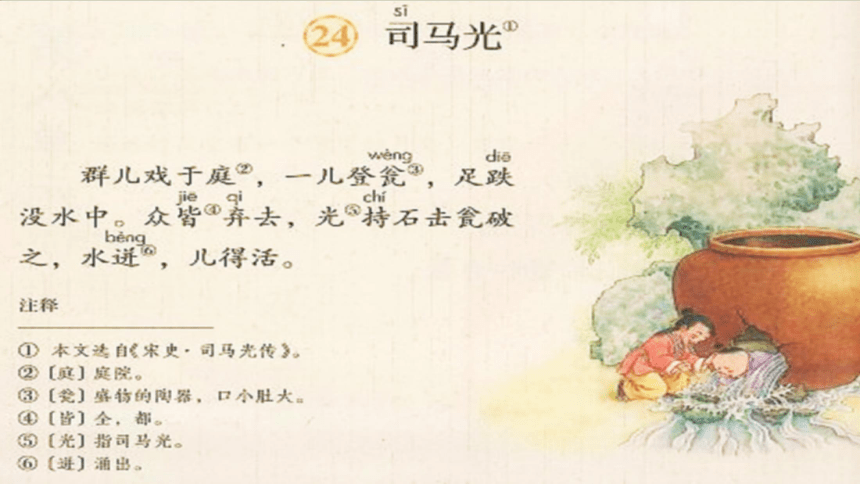 sī
24 司马光①
wèng diē
群儿戏于庭②，一儿登瓮③，足跌
jiē qì chí
没水中。众皆④弃去，光⑤持石击瓮破
bèng
之，水迸⑥，儿得活。
注释
① 本文选自《宋史·司马光传》。
② 〔庭〕庭院。
③ 〔瓮〕盛物的陶器，口小肚大。
④ 〔皆〕全，都。
⑤ 〔光〕指司马光。
⑥ 〔迸〕涌出。